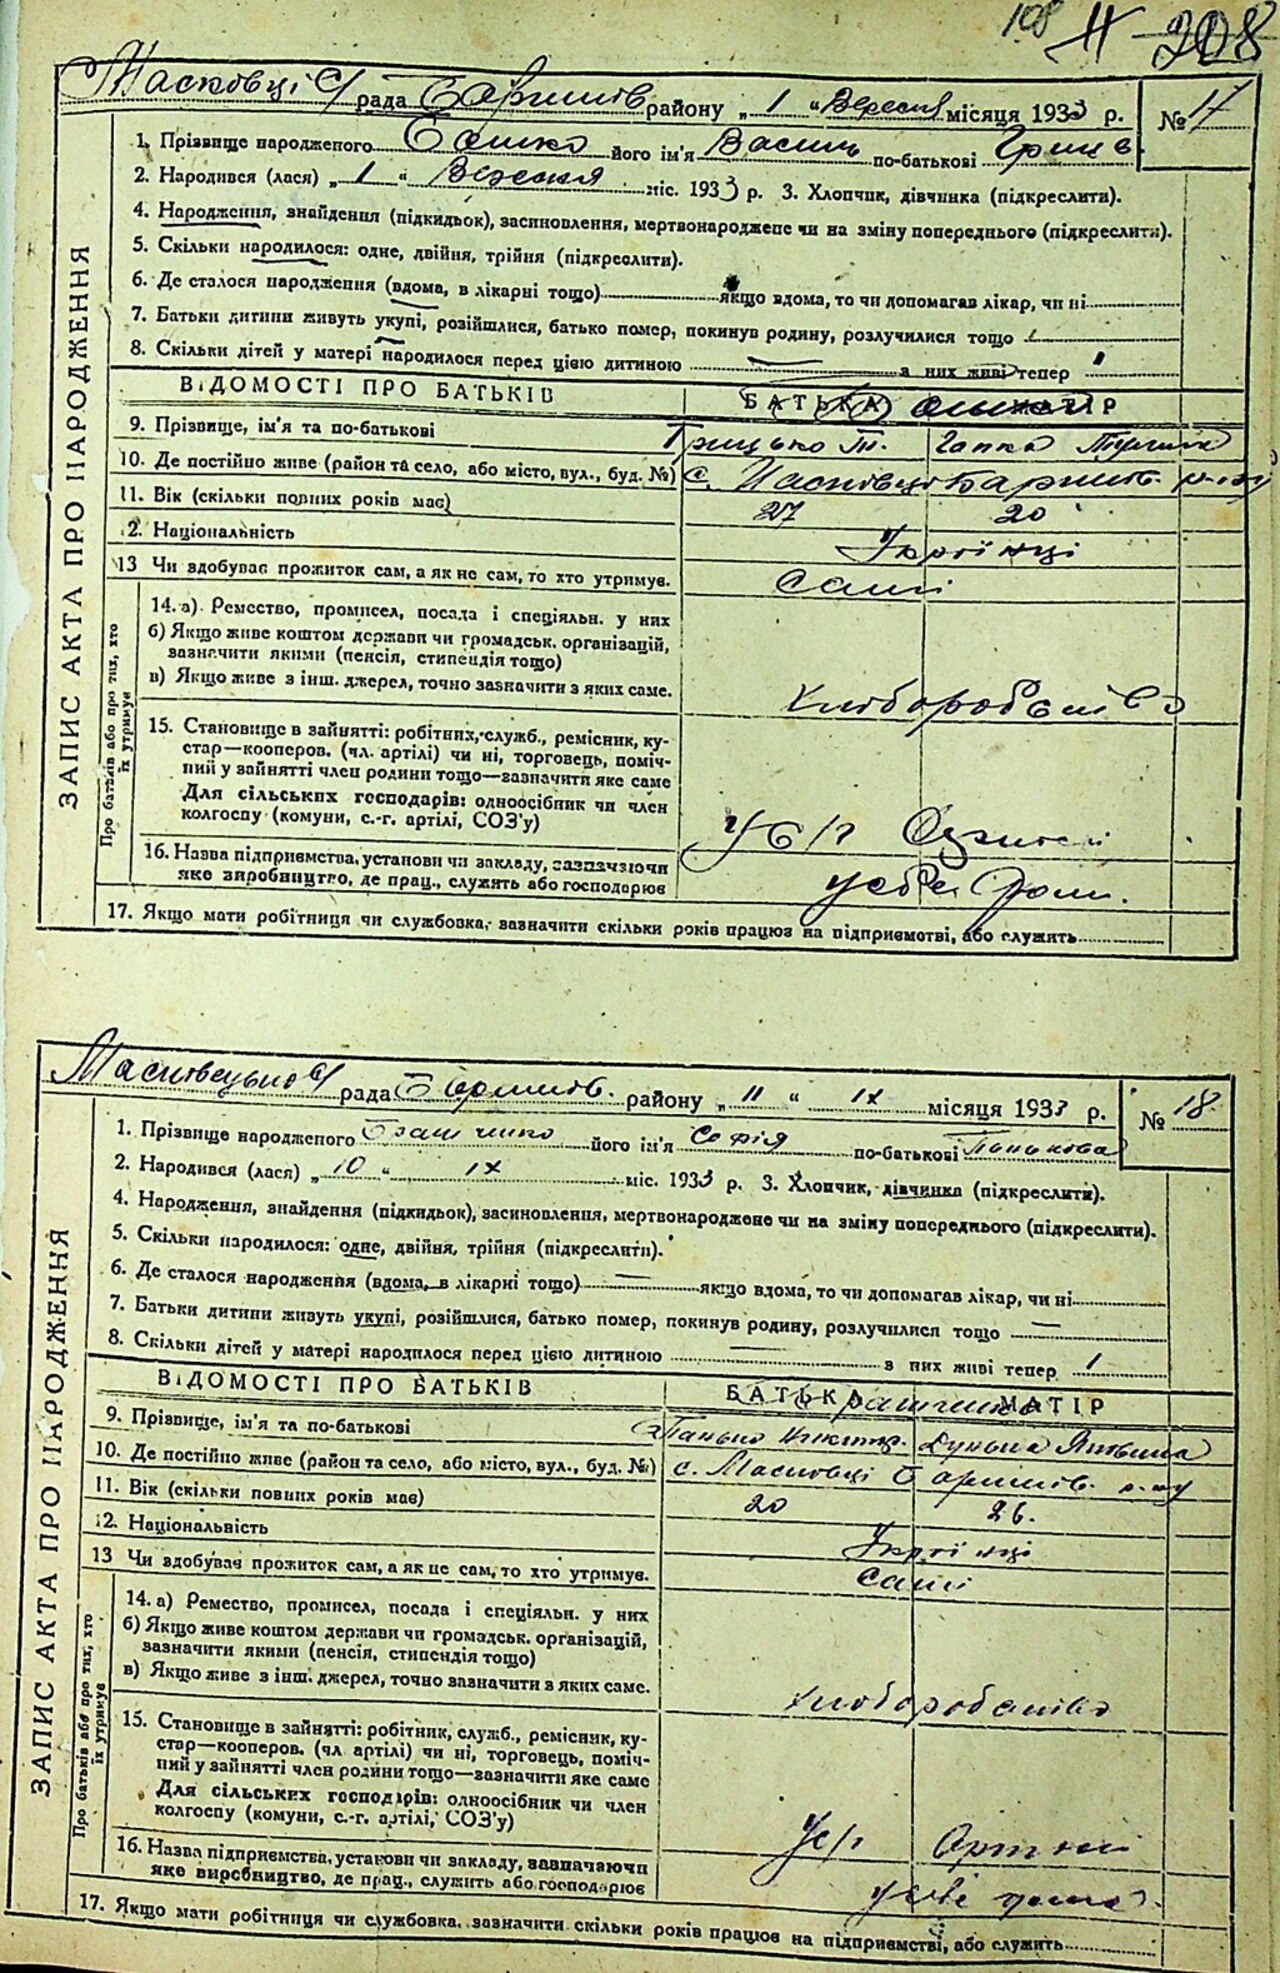 108 ІІ 208
Масковці с/ рада Баришів району „ 1 “ Вересня місяця 1933 р. № 17
ЗАПИС АКТА ПРО НАРОДЖЕННЯ
1. Прізвище народженого його ім'я Василь по-батькові Гриців
2. Народився (лася) „ 1 “ Вересня міс. 1933 р. 3. Хлопчик, дівчинка (підкреслити).
4. Народження, знайдення (підкидьок), засиновлення, мертвонароджене чи на зміну попереднього (підкреслити).
5. Скільки народилося: одне, двійня, трійня (підкреслити).
6. Де сталося народження (вдома, в лікарні тощо) якщо вдома, то чи допомагав лікар, чи ні
7. Батьки дитини живуть укупі, розійшлися, батько помер, покинув родину, розлучилися тощо
8. Скільки дітей у матері народилося перед цією дитиною з них живі тепер
ВІДОМОСТІ ПРО БАТЬКІВ БАТЬКА МАТІР
9. Прізвище, ім'я та по-батькові Грицько Т. Гапка
10. Де постійно живе (район та село, або місто, вул., буд. №) с. Масковці Баришів. р-ну
11. Вік (скільки повних років має) 27 20
12. Національність Українці
13 Чи здобуває прожиток сам, а як не сам, то хто утримує. Самі
Про батьків або про тих, хто їх утримує
14. а) Ремество, промисел, посада і спеціяльн. у них
б) Якщо живе коштом держави чи громадськ. організацій,
зазначити якими (пенсія, стипендія тощо)
в) Якщо живе з інш. джерел, точно зазначити з яких саме.
Хліборобство
15. Становище в зайнятті: робітник, служб., ремісник, ку-
стар—кооперов. (чл. артілі) чи ні, торговець, поміч-
ний у зайнятті член родини тощо—зазначити яке саме
Для сільських господарів: одноосібник чи член
колгоспу (комуни, с.-г. артілі, СОЗ'у)
16. Назва підприємства, установи чи закладу, зазначаючи
яке виробництво, де прац., служить або господарює
17. Якщо мати робітниця чи службовка, зазначити скільки років працює на підприємстві, або служить
Масковецька с/ рада Баришів. району „ 11 “ ІХ місяця 1933 р. № 18
ЗАПИС АКТА ПРО НАРОДЖЕННЯ
1. Прізвище народженого його ім'я Софія по-батькові Панькова
2. Народився (лася) „ 10 “ ІХ міс. 1933 р. 3. Хлопчик, дівчинка (підкреслити).
4. Народження, знайдення (підкидьок), засиновлення, мертвонароджене чи на зміну попереднього (підкреслити).
5. Скільки народилося: одне, двійня, трійня (підкреслити).
6. Де сталося народження (вдома, в лікарні тощо) — якщо вдома, то чи допомагав лікар, чи ні
7. Батьки дитини живуть укупі, розійшлися, батько помер, покинув родину, розлучилися тощо —
8. Скільки дітей у матері народилося перед цією дитиною — з них живі тепер 1
ВІДОМОСТІ ПРО БАТЬКІВ БАТЬКА МАТІР
9. Прізвище, ім'я та по-батькові Панько Никиф.
10. Де постійно живе (район та село, або місто, вул., буд. №) с. Масковці Баришів. р-ну
11. Вік (скільки повних років має) 20 26.
12. Національність Українці
13 Чи здобуває прожиток сам, а як не сам, то хто утримує. Самі
Про батьків або про тих, хто їх утримує
14. а) Ремество, промисел, посада і спеціяльн. у них
б) Якщо живе коштом держави чи громадськ. організацій,
зазначити якими (пенсія, стипендія тощо)
в) Якщо живе з інш. джерел, точно зазначити з яких саме.
Хліборобство
15. Становище в зайнятті: робітник, служб., ремісник, ку-
стар—кооперов. (чл артілі) чи ні, торговець, поміч-
ний у зайнятті член родини тощо—зазначити яке саме
Для сільських господарів: одноосібник чи член
колгоспу (комуни, с.-г. артілі, СОЗ'у)
Артілі
16. Назва підприємства, установи чи закладу, зазначаючи
яке виробництво, де прац., служить або господарює
17. Якщо мати робітниця чи службовка, зазначити скільки років працює на підприємстві, або служить